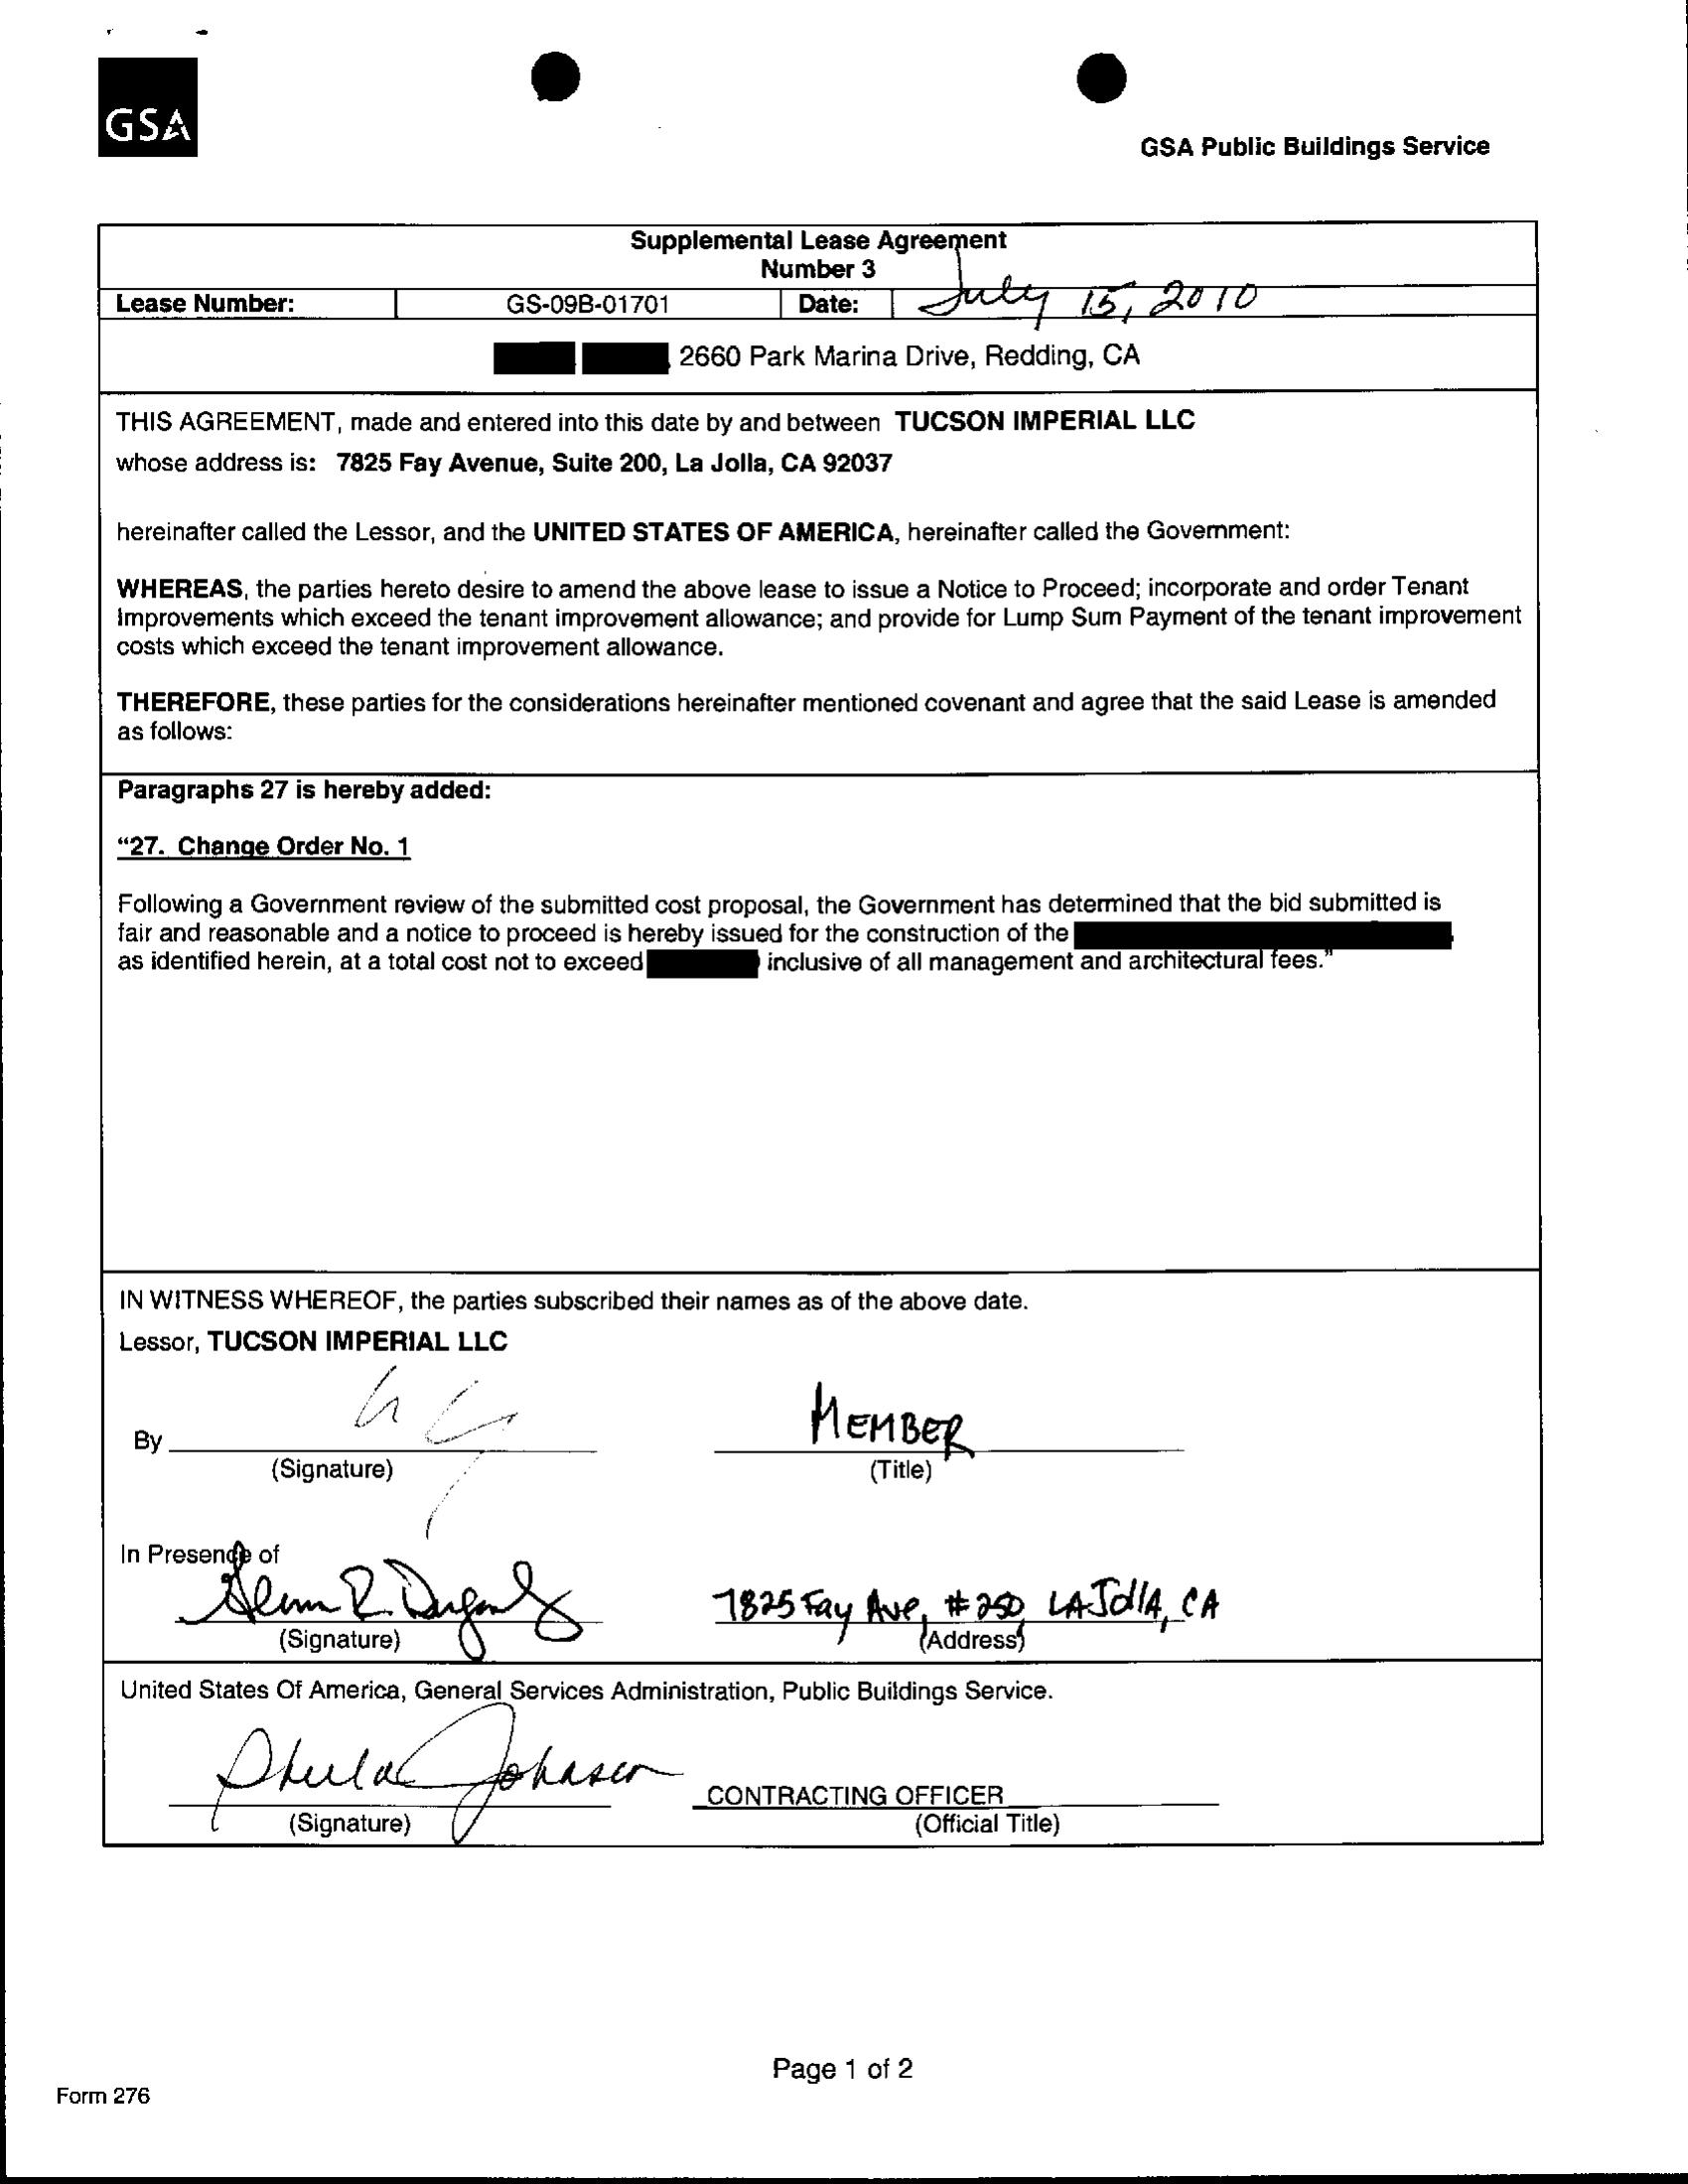 GSA
GSA Public Buildings Service
Supplemental Lease Agreement
Number 3
Lease Number: GS-09B-01701 Date: July 15, 2010
2660 Park Marina Drive, Redding, CA
THIS AGREEMENT, made and entered into this date by and between TUCSON IMPERIAL LLC
whose address is: 7825 Fay Avenue, Suite 200, La Jolla, CA 92037
hereinafter called the Lessor, and the UNITED STATES OF AMERICA, hereinafter called the Government:
WHEREAS, the parties hereto desire to amend the above lease to issue a Notice to Proceed; incorporate and order Tenant
Improvements which exceed the tenant improvement allowance; and provide for Lump Sum Payment of the tenant improvement
costs which exceed the tenant improvement allowance.
THEREFORE, these parties for the considerations hereinafter mentioned covenant and agree that the said Lease is amended
as follows:
Paragraphs 27 is hereby added:
“27. Change Order No. 1
Following a Government review of the submitted cost proposal, the Government has determined that the bid submitted is
fair and reasonable and a notice to proceed is hereby issued for the construction of the
as identified herein, at a total cost not to exceed inclusive of all management and architectural fees.”
IN WITNESS WHEREOF, the parties subscribed their names as of the above date.
Lessor, TUCSON IMPERIAL LLC
By MEMBER
(Signature) (Title)
In Presence of
7825 Fay Ave, #250, LA JOllA, CA
(Signature) (Address)
United States Of America, General Services Administration, Public Buildings Service.
Sheila Johnson CONTRACTING OFFICER
(Signature) (Official Title)
Page 1 of 2
Form 276